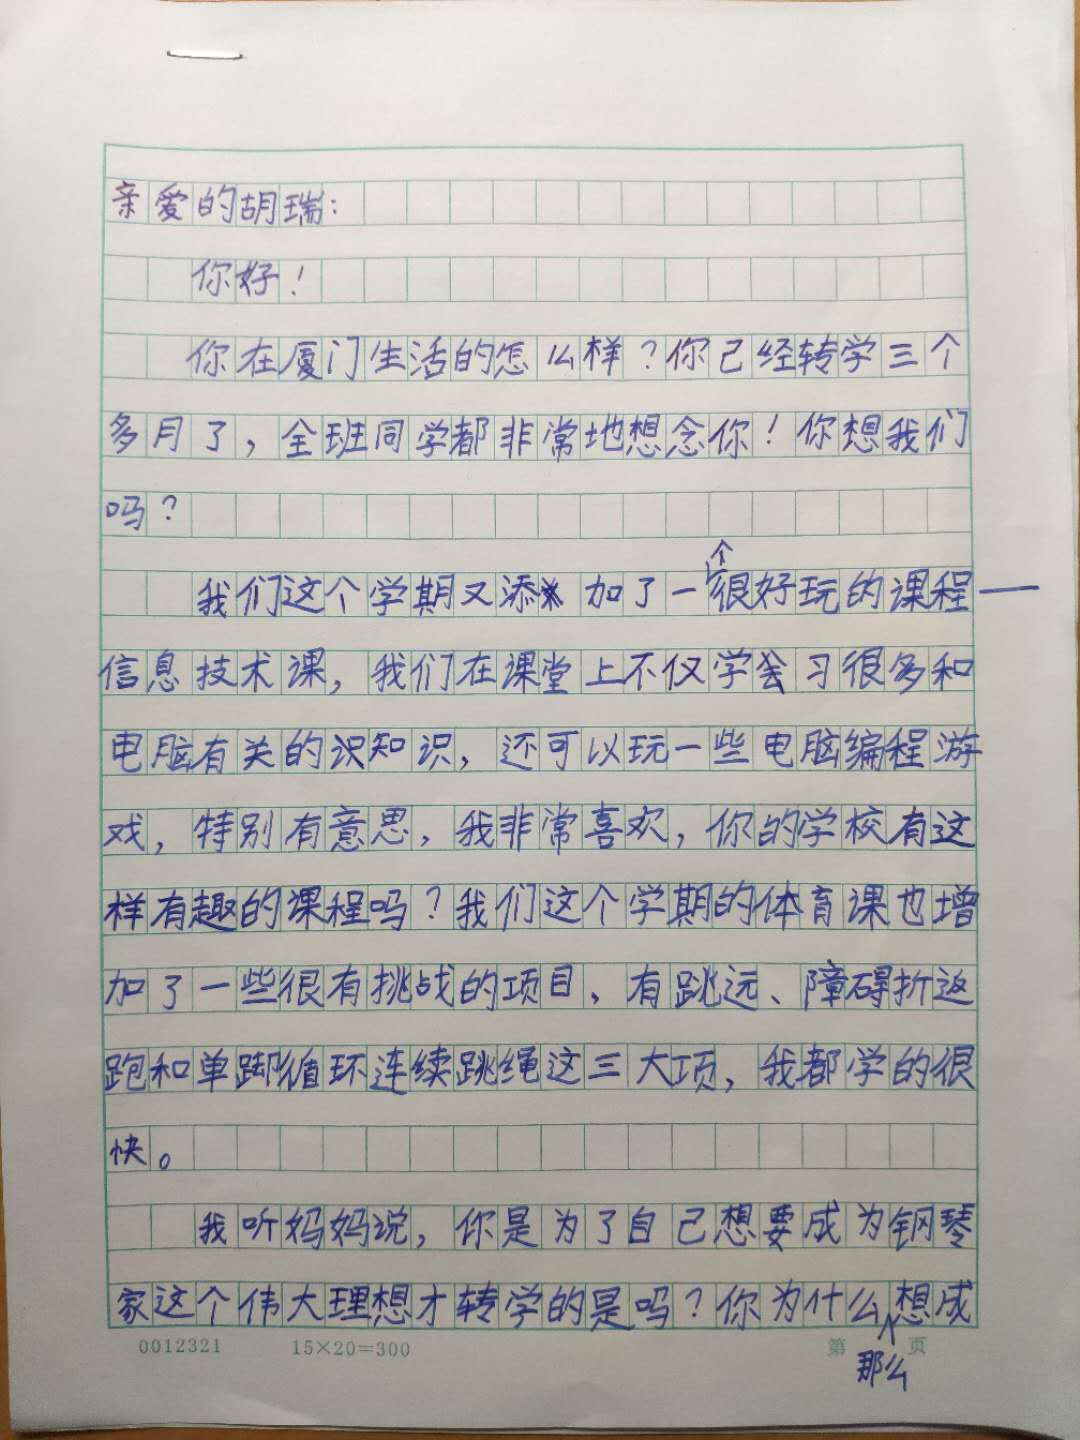 亲爱的胡瑞：
你好！
你在厦门生活的怎么样？你己经转学三个
多月了，全班同学都非常地想念你！你想我们
吗？
我们这个学期又添加了一个很好玩的课程——
信息技术课，我们在课堂上不仅学会习很多和
电脑有关的识知识，还可以玩一些电脑编程游
戏，特别有意思，我非常喜欢，你的学校有这
样有趣的课程吗？我们这个学期的体育课也增
加了一些很有挑战的项目，有跳远、障碍折返
跑和单脚循环连续跳绳这三大项，我都学的很
快。
我听妈妈说，你是为了自己想要成为钢琴
家这个伟大理想才转学的是吗？你为什么那么想成
0012321 15×20=300 第 页